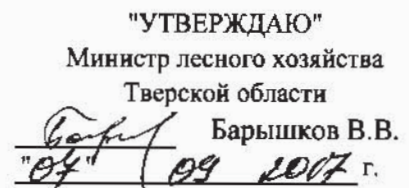 "УТВЕРЖДАЮ"
Министр лесного хозяйства
Тверской области
Барышков В.В.
"07" 09 2007 г.